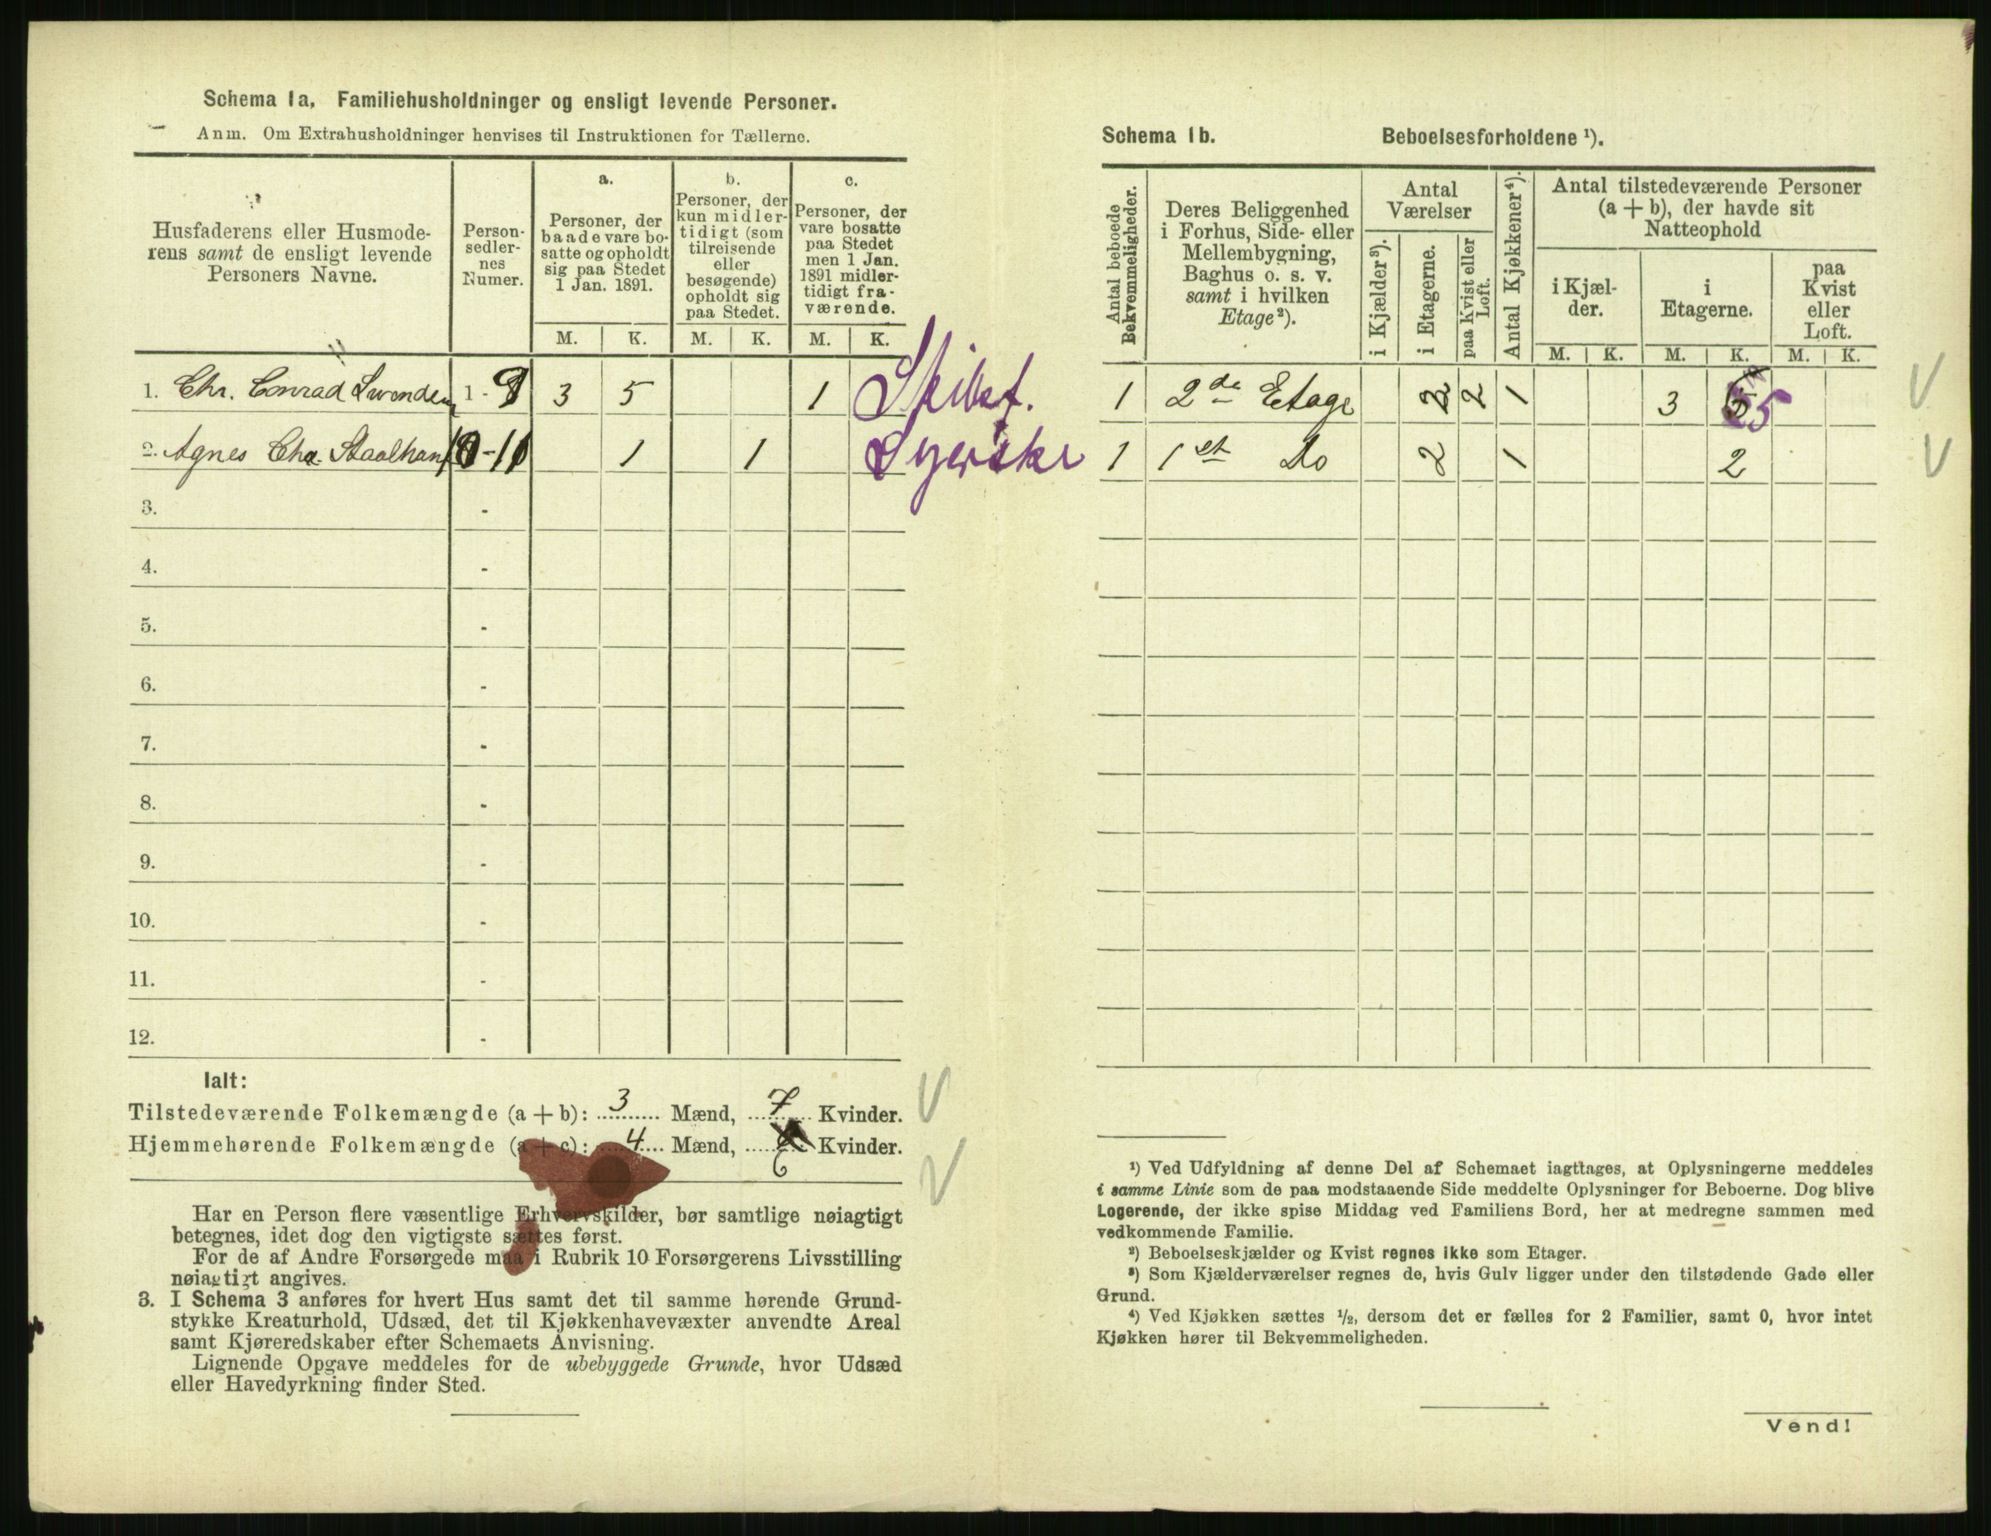 Schema 1a. Familiehusholdninger og ensligt levende Personer.
Anm. Om Extrahusholdninger henvises til Instruktionen for Tællerne.
Husfaderens eller Husmode-
rens samt de ensligt levende
Personers Navne.
Person-
sedler-
nes
Numer.
a.
Personer, der
baade vare bo-
satte og opholdt
sig paa Stedet
1 Jan. 1891.
b.
Personer, der
kun midler-
tidigt (som
tilreisende
eller
besøgende)
opholdt sig
paa Stedet.
c.
Personer, der
vare bosatte
paa Stedet
men 1 Jan.
1891 midler-
tidigt fra-
værende.
M. K. M. K. M. K.
1. Chr. Conrad 1 - 9 3 5 1 Skibsf.
2. Agnes Cha. 10-11 1 1 Syerske
3. -
4. -
5. -
6. -
7. -
8. -
9. -
10. -
11. -
12. -
Ialt:
Tilstedeværende Folkemængde (a + b): 3 Mænd, 7 Kvinder.
Hjemmehørende Folkemængde (a + c): 4 Mænd, 6 Kvinder.
Har en Person flere væsentlige Erhvervskilder, bør samtlige nøiagtigt
betegnes, idet dog den vigtigste sættes først.
For de af Andre Forsørgede maa i Rubrik 10 Forsørgerens Livsstilling
nøiagtigt angives.
3. I Schema 3 anføres for hvert Hus samt det til samme hørende Grund-
stykke Kreaturhold, Udsæd, det til Kjøkkenhavevæxter anvendte Areal
samt Kjøreredskaber efter Schemaets Anvisning.
Lignende Opgave meddeles for de ubebyggede Grunde, hvor Udsæd
eller Havedyrkning finder Sted.
Schema 1b. Beboelsesforholdene ¹).
Antal beboede
Bekvemmeligheder.
Deres Beliggenhed
i Forhus, Side- eller
Mellembygning,
Baghus o. s. v.
samt i hvilken
Etage²).
Antal
Værelser
i Kjælder³).
i Etagerne.
paa Kvist eller
Loft.
Antal Kjøkkener⁴).
Antal tilstedeværende Personer
(a + b), der havde sit
Natteophold
i Kjæl-
der.
i
Etagerne.
paa
Kvist
eller
Loft.
M. K. M. K. M. K.
1 2de Etage 2 2 1 3 5
1 1st Do 2 1 2
¹) Ved Udfyldning af denne Del af Schemaet iagttages, at Oplysningerne meddeles
i samme Linie som de paa modstaaende Side meddelte Oplysninger for Beboerne. Dog blive
Logerende, der ikke spise Middag ved Familiens Bord, her at medregne sammen med
vedkommende Familie.
²) Beboelseskjælder og Kvist regnes ikke som Etager.
³) Som Kjælderværelser regnes de, hvis Gulv ligger under den tilstødende Gade eller
Grund.
⁴) Ved Kjøkken sættes ½, dersom det er fælles for 2 Familier, samt 0, hvor intet
Kjøkken hører til Bekvemmeligheden.
Vend!